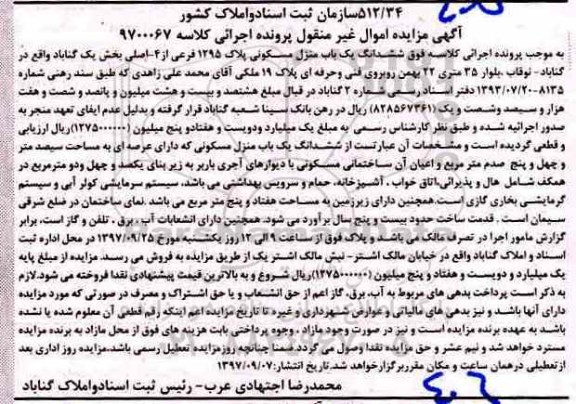 ۵۱۲/۳۴سازمان ثبت اسنادواملاک کشور
آگهی مزایده اموال غیر منقول پرونده اجرائی کلاسه ۹۷۰۰۰۶۷
به موجب پرونده اجرائی کلاسه فوق ششدانگ یک باب منزل مسکونی پلاک ۱۲۹۵ فرعی از۴-اصلی بخش یک گناباد واقع در
گناباد- نوقاب ،بلوار ۳۵ متری ۲۲ بهمن روبروی فنی وحرفه ای پلاک ۱۹ ملکی آقای محمد علی زاهدی که طبق سند رهنی شماره
۸۱۳۵-۱۳۹۳/۰۷/۲۰ دفتر اسناد رسمی شماره ۲ گناباد در قبال مبلغ هشتصد و بیست و هشت میلیون و پانصد و شصت و هفت
هزار و سیصد وشصت و یک (۸۲۸۵۶۷۳۶۱) ریال در رهن بانک سینا شعبه گناباد قرار گرفته و بدلیل عدم ایفای تعهد منجر به
صدور اجرائیه شده و طبق نظر کارشناس رسمی به مبلغ یک میلیارد ودویست و هفتادو پنج میلیون (۱۲۷۵۰۰۰۰۰۰)ریال ارزیابی
و قطعی گردیده است و مشخصات آن عبارتست از ششدانگ یک باب منزل مسکونی که دارای عرصه ای به مساحت سیصد متر
و چهل و پنج صدم متر مربع و اعیان آن ساختمانی مسکونی با دیوارهای آجری باربر به زیر بنای یکصد و چهل ودو مترمربع در
همکف شامل هال و پذیرائی،اتاق خواب ، آشپزخانه، حمام و سرویس بهداشتی می باشد، سیستم سرمایشی کولر آبی و سیستم
گرمایشی بخاری گازی است.همچنین دارای زیرزمین به مساحت هفتاد و پنج متر مربع می باشد .نمای ساختمان در ضلع شرقی
سیمان است . قدمت ساخت حدود بیست و پنج سال برآورد می شود. همچنین دارای انشعابات آب ، برق ، تلفن و گاز است، برابر
گزارش مامور اجرا در تصرف مالک می باشد و پلاک فوق از ساعت ۹ الی ۱۲ روز یکشنبه مورخ ۱۳۹۷/۰۹/۲۵ در محل اداره ثبت
اسناد و املاک گناباد واقع در خیابان مالک اشتر- نبش مالک اشتر یک از طریق مزایده به فروش می رسد. مزایده از مبلغ پایه
یک میلیارد و دویست و هفتاد و پنج میلیون (۱۲۷۵۰۰۰۰۰۰)ریال شروع و به بالاترین قیمت پیشنهادی نقدا فروخته می شود.لازم
به ذکر است پرداخت بدهی های مربوط به آب، برق، گاز اعم از حق انشعاب و یا حق اشتراک و مصرف در صورتی که مورد مزایده
دارای آنها باشد و نیز بدهی های مالیاتی و عوارض شهرداری و غیره تا تاریخ مزایده اعم اینکه رقم قطعی آن معلوم شده یا نشده
باشد به عهده برنده مزایده است و نیز در صورت وجود مازاد ، وجوه پرداختی بابت هزینه های فوق از محل مازاد به برنده مزایده
مسترد خواهد شد و نیم عشر و حق مزایده نقدا وصول می گردد ضمنا چنانچه روزمزایده تعطیل رسمی باشد،مزایده روز اداری بعد
ازتعطیلی درهمان ساعت و مکان مقرربرگزارخواهد شد.تاریخ انتشار:۱۳۹۷/۰۹/۰۷
محمدرضا اجتهادی عرب- رئیس ثبت اسنادواملاک گناباد